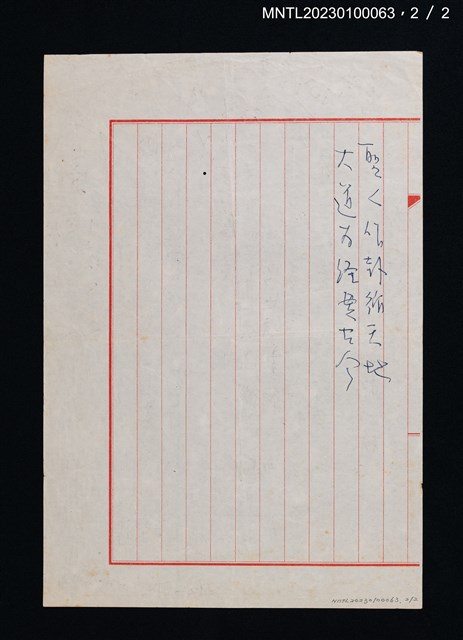 MNTL20230100063，2 / 2
聖人作卦循天地
大道为經貫古今
MNTL20230100063, 2/2